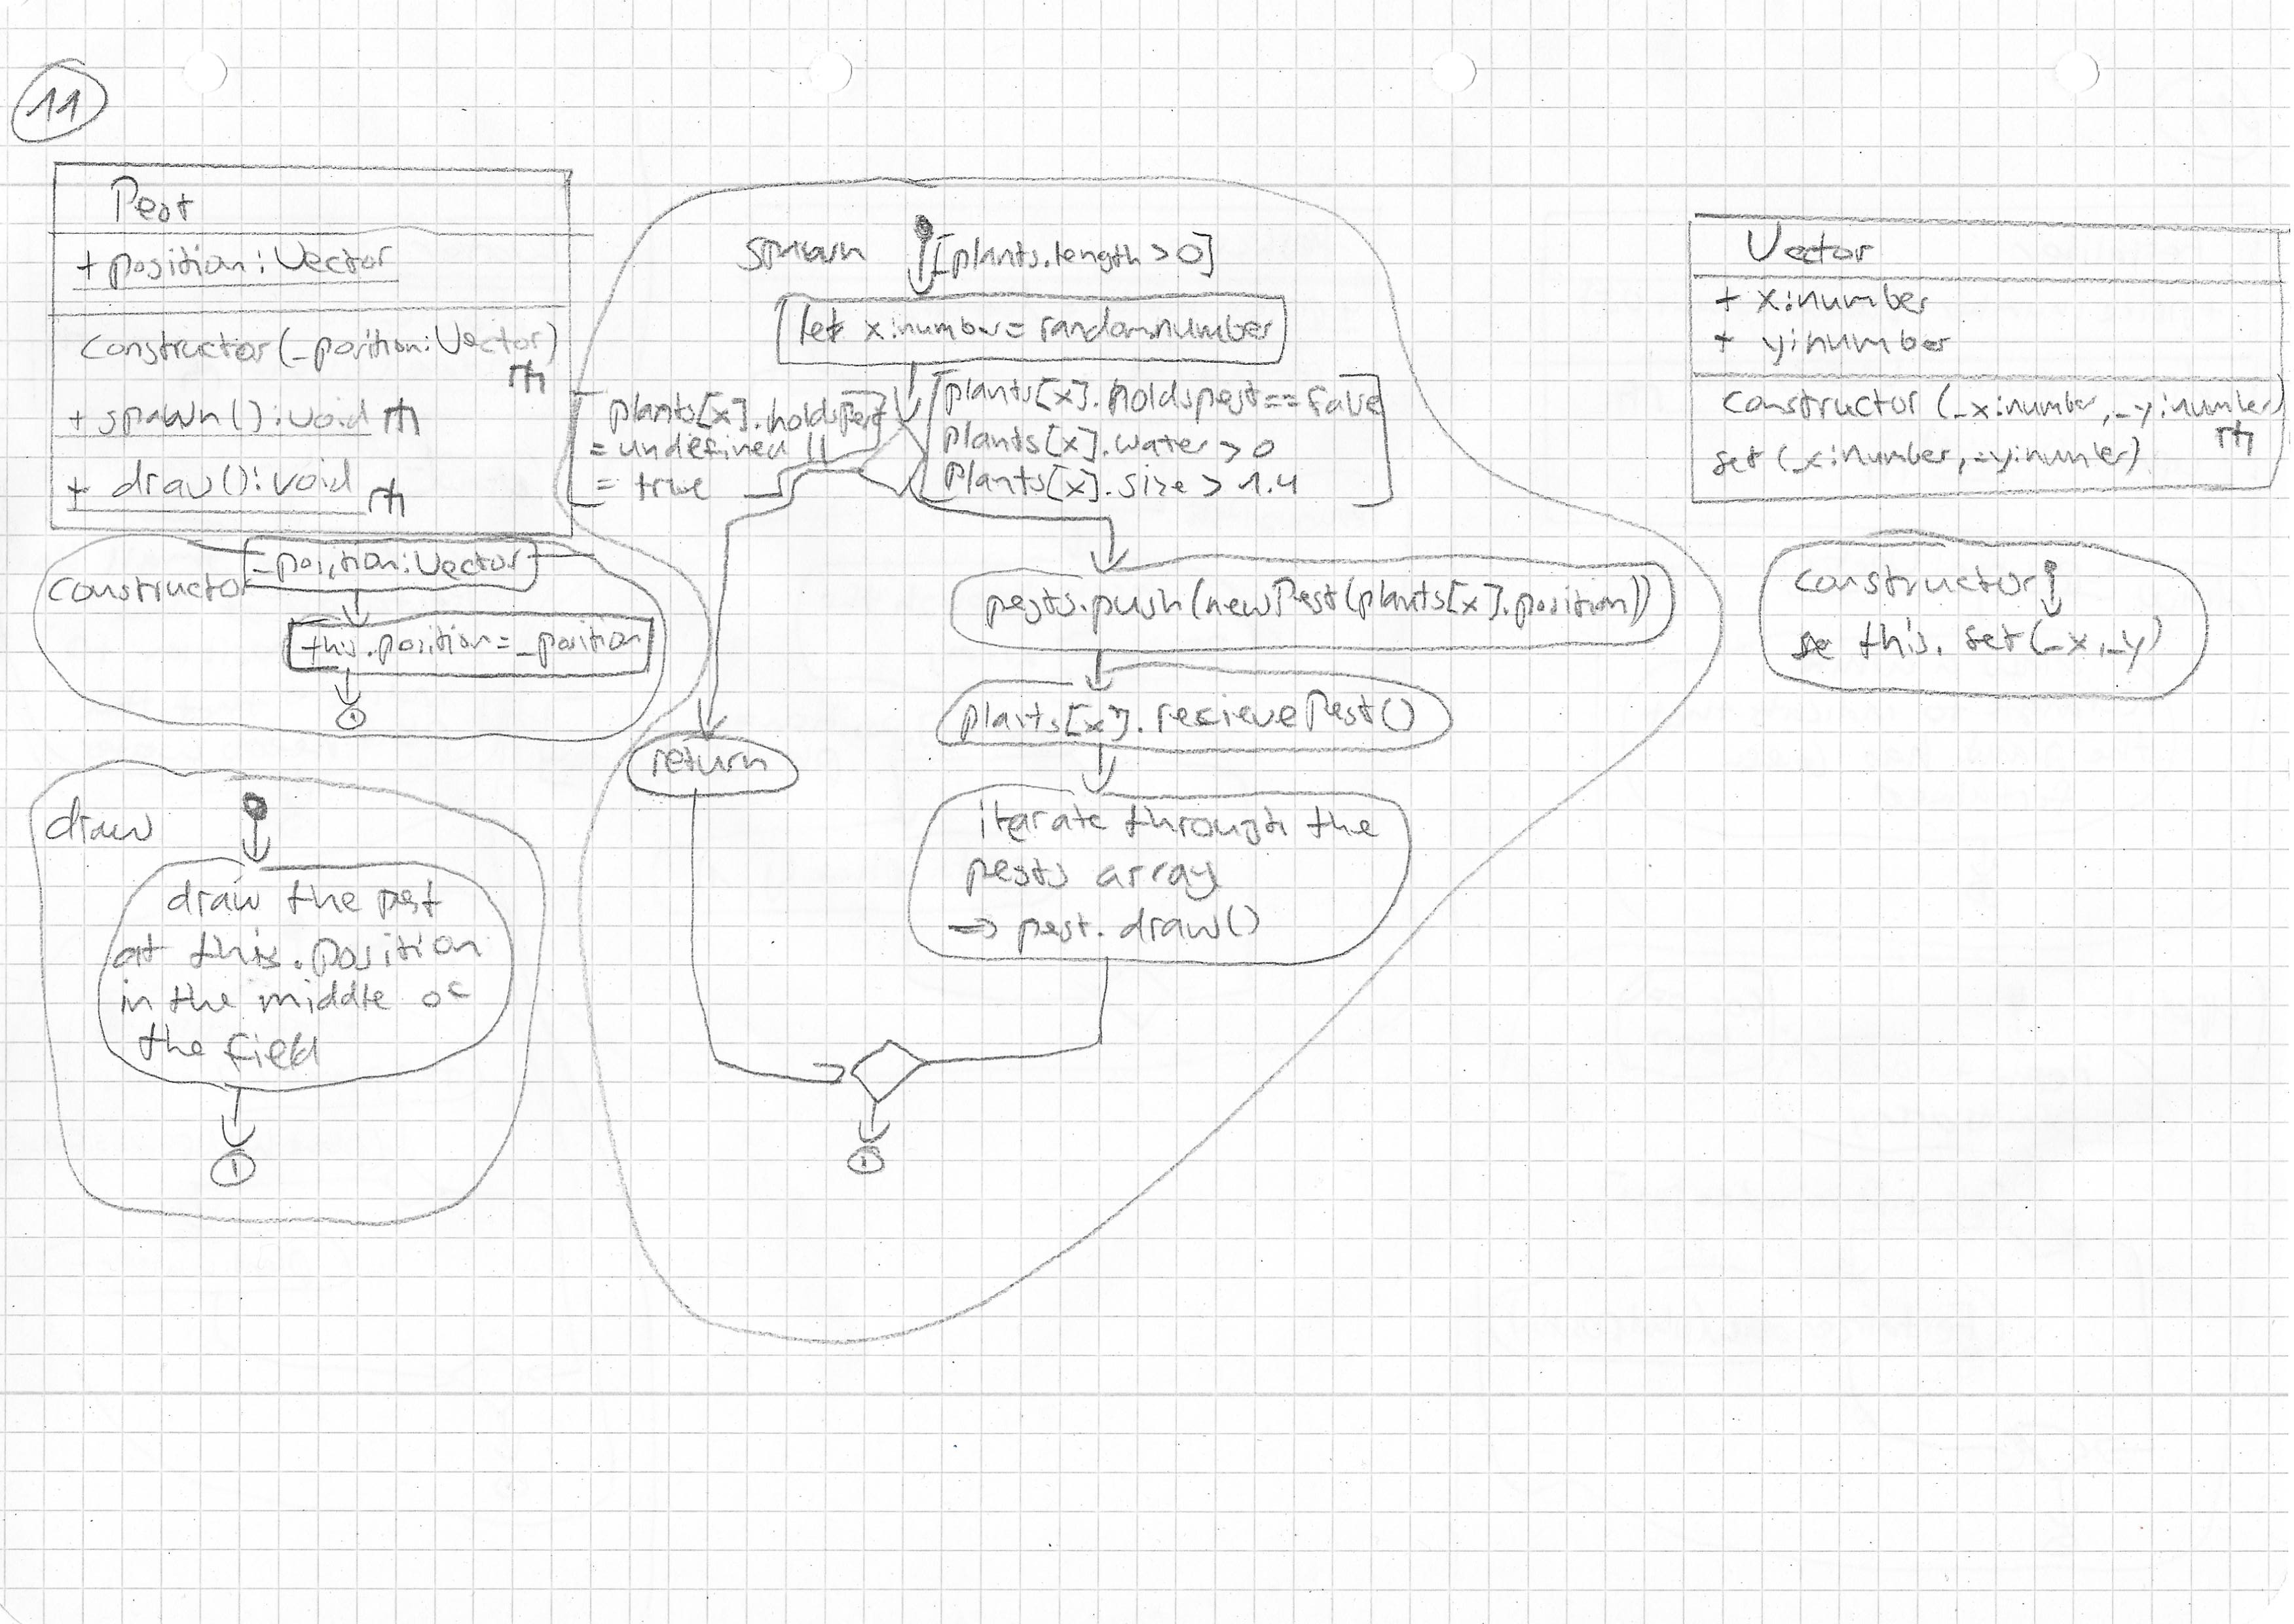 11
Pest
+ position: Vector
constructor(_position: Vector)
+ spawn(): void
+ draw(): void
constructor
_position: Vector
this.position = _position
draw
draw the pest
at this.position
in the middle of
the field
spawn
[plants.length > 0]
let x: number = randomnumber
plants[x].holdspest
= undefined ||
= true
plants[x].holdspest == false
plants[x].water > 0
plants[x].size > 1.4
pests.push(new Pest(plants[x].position))
plants[x].recievePest()
return
iterate through the
pests array
=> pest.draw()
Vector
+ x: number
+ y: number
constructor (_x: number, _y: number)
set (_x: number, _y: number)
constructor
this.set(_x, _y)